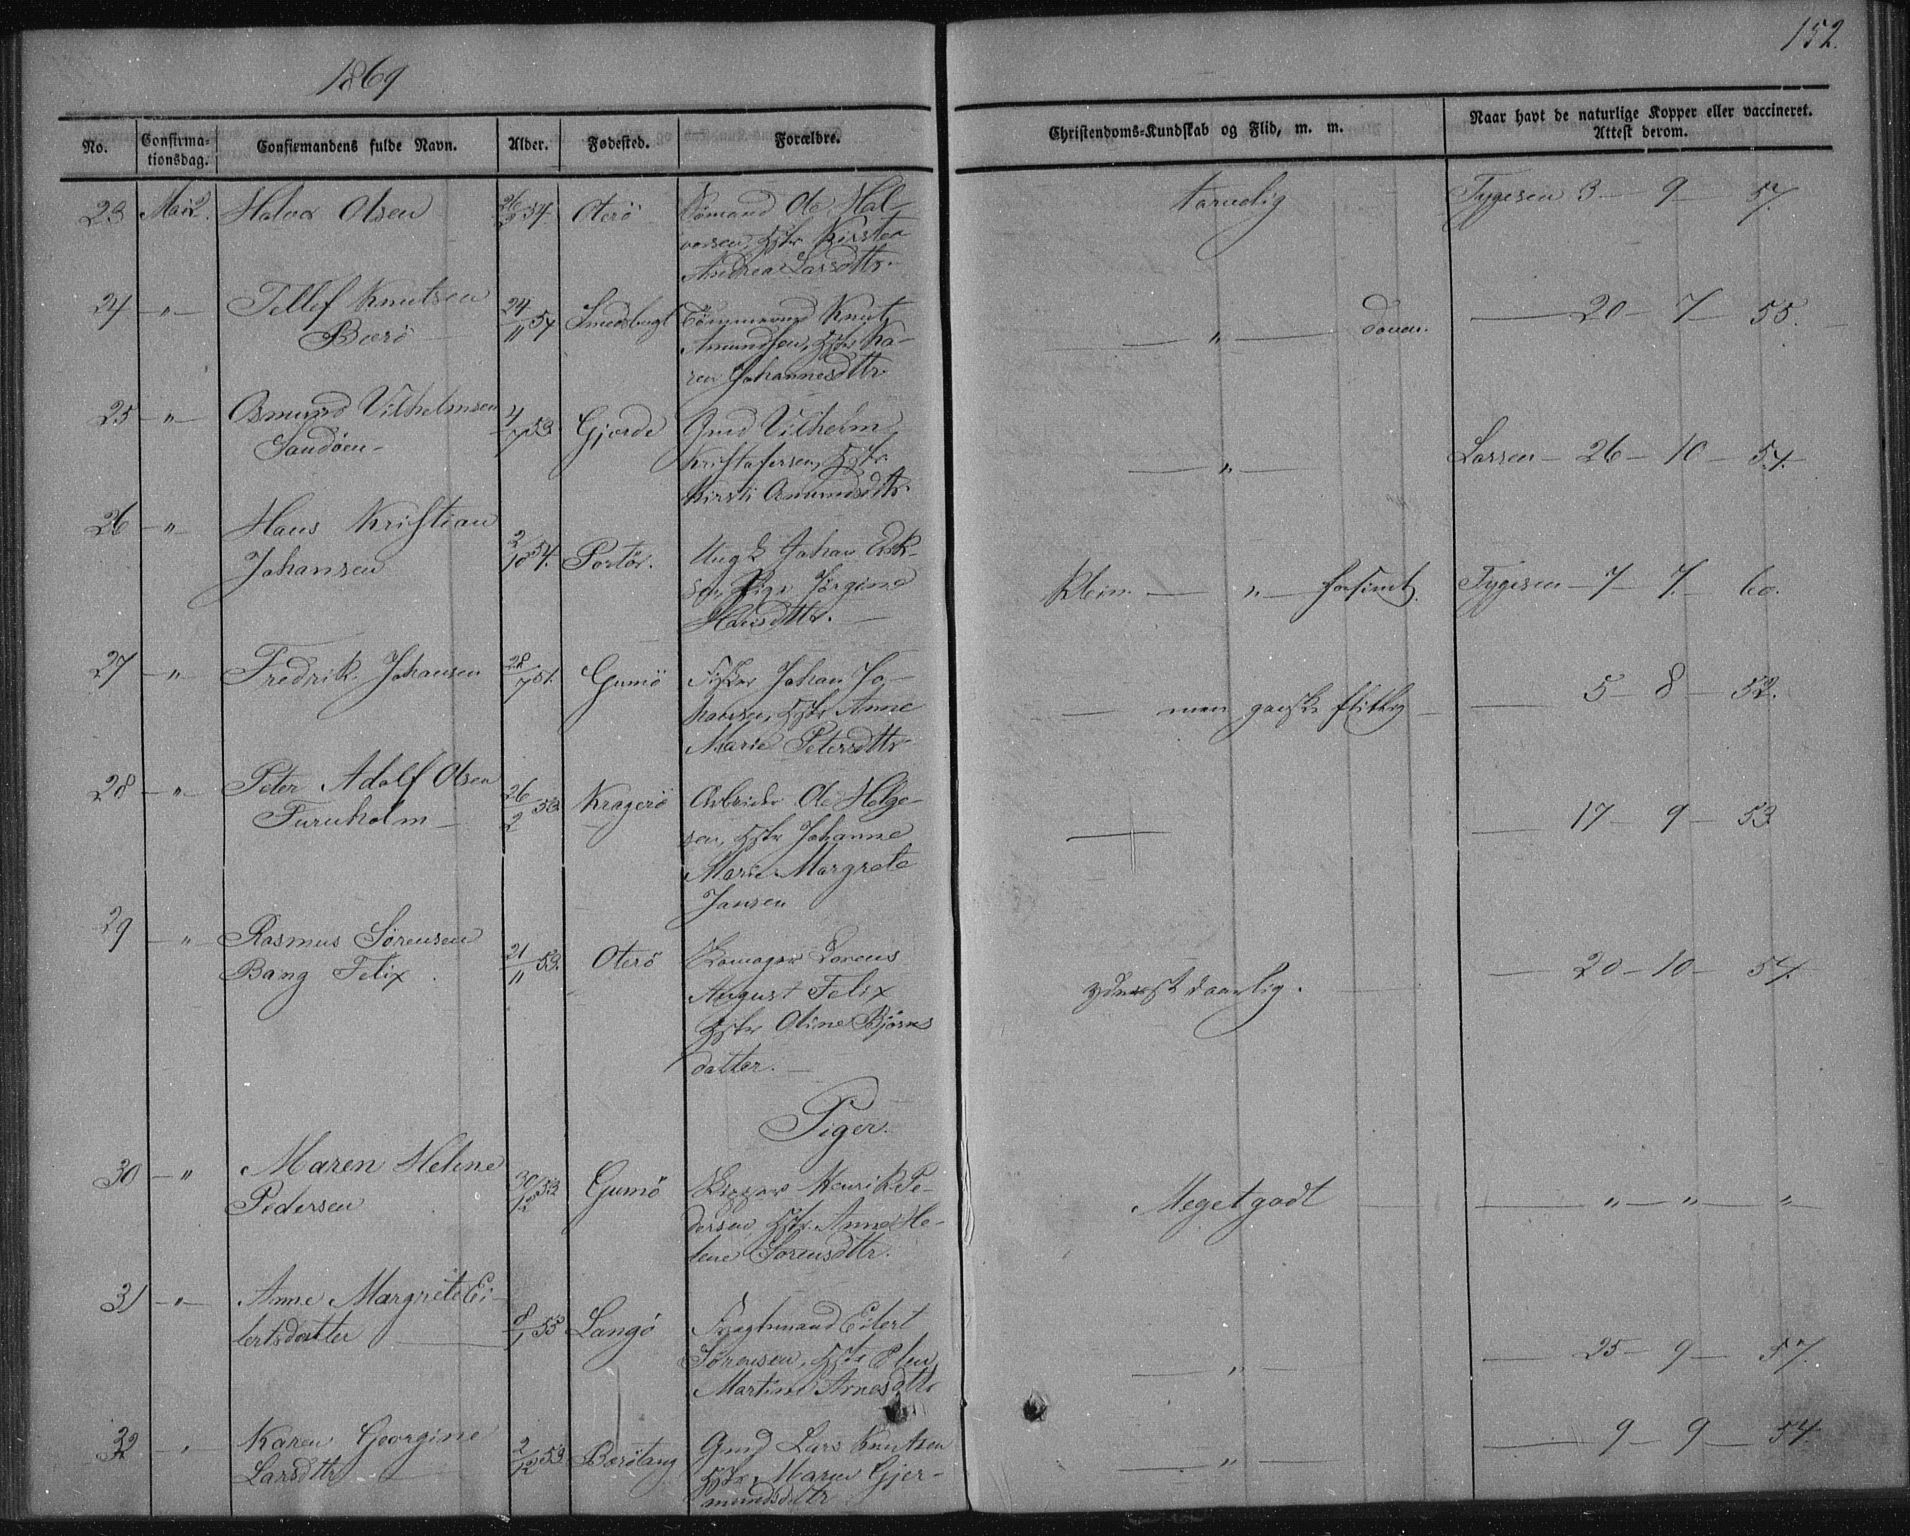 1869
152.
No.
Confirma-
tionsdag.
Confirmandens fulde Navn.
Alder.
Fødested.
Forældre.
Christendoms-Kundskab og Flid, m. m.
Naar havt de naturlige Kopper eller vaccineret.
Attest derom.
23 Mai 2. Halvor Olsen 26/2 54. Oterö Sømand Ole Hal-
vorsen, Hstr Kirsten
Andrea Larsdttr.
taruelig
Tygesen 3 — 9 — 57.
24 — " — Tellef Knutsen
Berö
24/11 54 Smedsbugt Tömmermd Knut
Amundsen, Hstr Ka-
ren Johannesdttr
— " — doven.
— 20 — 7 — 55.
25 — " — Osmund Vilhelmsen
Sandöen
4/7 53. Gjerde Gmd Vilhelm
Kristofersen, Hstr
Kirsti Osmundsdttr.
— " —
Larsen — 26 — 10 — 54.
26 — " Hans Kristian
Johansen
2/10 54. Portör. Ungk Johan Erik-
sen, Pige Jørgine
Hansdttr.
Klein. — " — forsømt.
Tygesen — 7 — 7. — 60.
27 — " Fredrik Johansen 28/7 51. Gumö Fisker Johan Jo-
hansen, Hstr Anne
Marie Petersdttr
— men ganske flittig —
— 5 — 8 — 52.
28 — " — Peter Adolf Olsen
Furuholm —
26/2 53 Kragerö Arbeider Ole Helge-
sen, Hstr Johanne
Marie Margrete
Jansen
— 17 — 9 — 53
29 — " Rasmus Sörensen
Bang Felix.
21/11 53. Oterö Skomager Lorens
August Felix
Hstr Oline Björns
datter. —
yderst daarlig.
— 20 — 10 — 54.
Piger.
30 — " Maren Helene
Pedersen
30/12 53 Gumö Henrik Pe-
dersen, Hstr Anne He-
lene Sorensdttr.
Meget godt
— " — " — "
31 — " — Anne Margrete Ei-
lertsdatter —
8/1 55 Langö Fragtmand Eilert
Sörensen, Hstr Elen
Martine Arnesdttr
— " —
— 25 — 9 — 57.
32 " Karen Georgine
Larsdttr
2/12 53 Berötang Gmd Lars Knutsen
Hstr Maren Gjer-
mundsdttr
— " —
— 9 — 9 — 54.